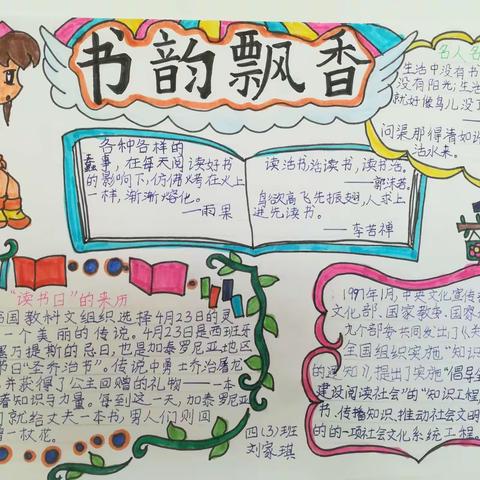 书韵飘香
名人名
生活中没有书
没有阳光;生活
就好像鸟儿没了
问渠那得清如许
活水来。
各种各样的
蠢事,在每天阅读好书
的影响下,仿佛烤在火上
一样,渐渐熔化。
——雨果
读活书,活读书,读书活。
——郭沫若
鸟欲高飞先振翅,人求上
进先读书。
——李苦禅
“读书日”的来历
国教科文组织选择4月23日的灵
一个美丽的传说。4月23日是西班牙
塞万提斯的忌日,也是加泰罗尼亚地区
节日“圣乔治节”。传说中勇士乔治屠龙
并获得了公主回赠的礼物——一本
着知识与力量。每到这一天,加泰罗尼亚
们就给丈夫一本书,男人们则回
一枚花。
四(3)班
刘家琪
1997年1月,中央文化宣传
文化部、国家教委、国家
九个部委共同发出了《关
全国组织实施“知识
的通知》,提出了实施“倡导全
建设阅读社会”的“知识工程
书、传播知识、推动社会文明
的的一项社会文化系统工程。